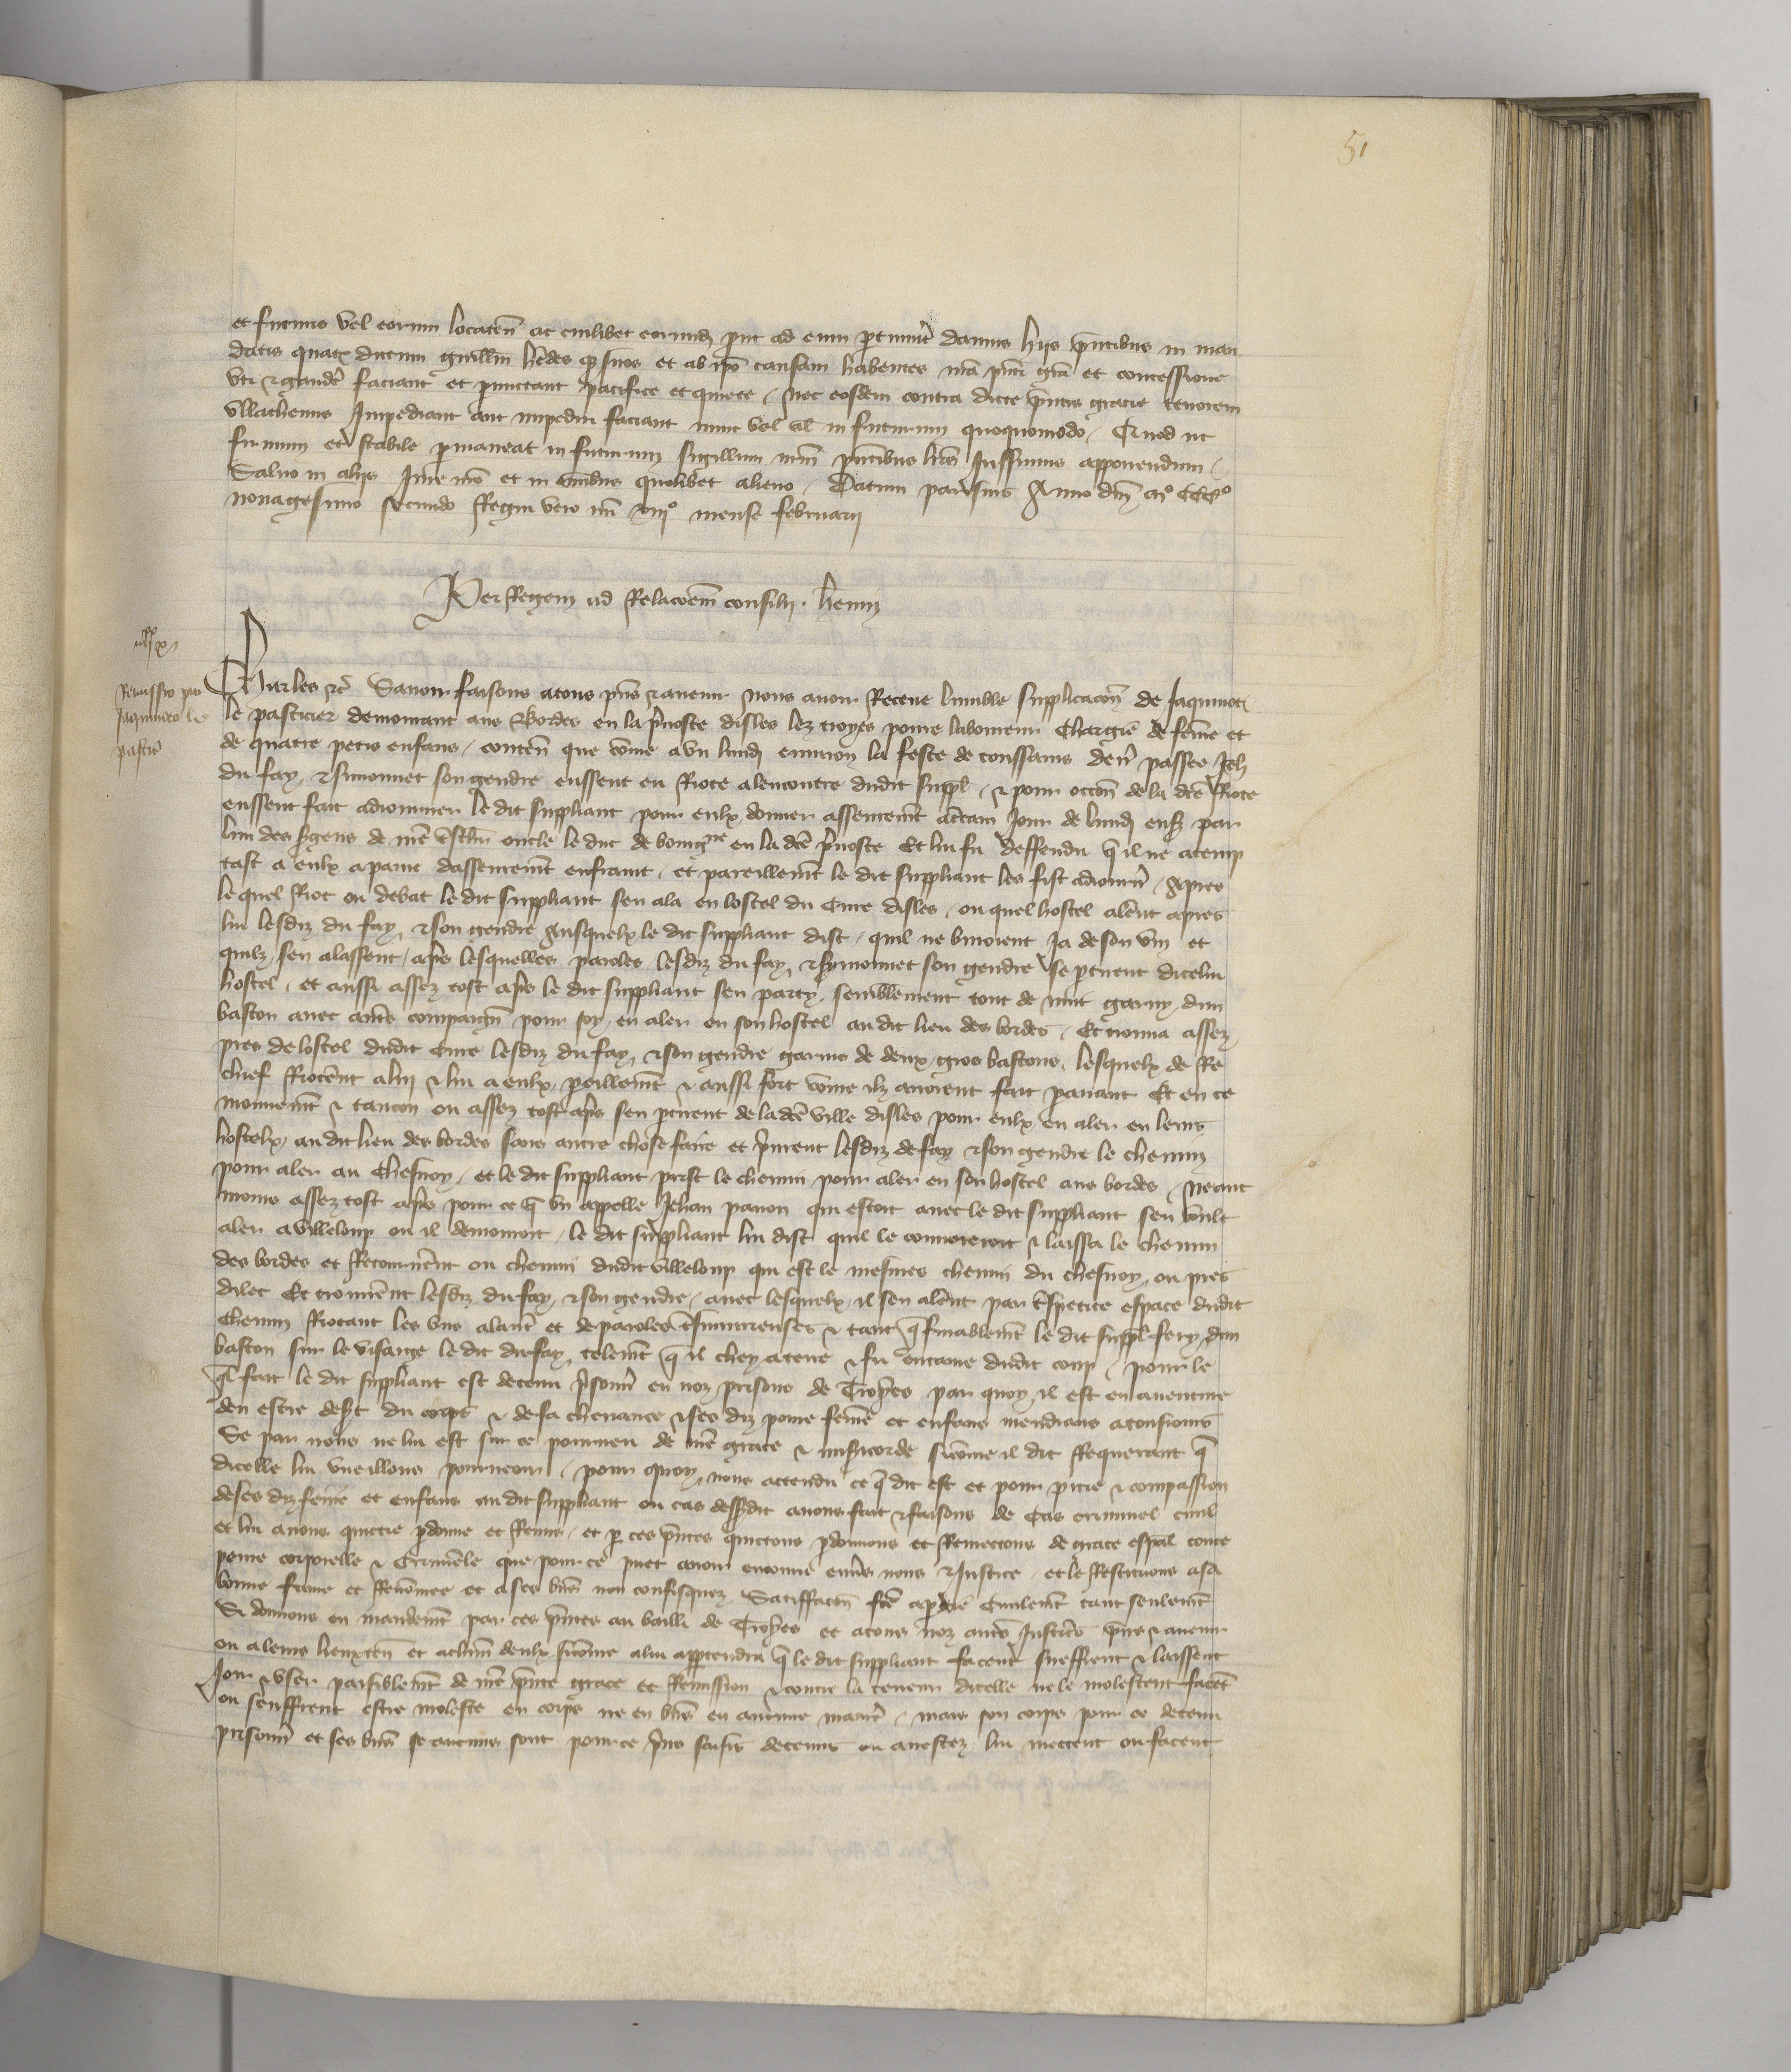 51
et futuris vel eorum locaten̄ ac cuilibet eorumdē prout ad eum ptinuīt damus hijs pn̄tibus in man
datis quatꝰ dictum guillm̄ hēdes qꝫ suos et ab ipō causam habentes nr̄a pn̄ti grā et concessione
vti & gaudēr faciant et pmittant pacifice et quiete / nec eosdem contra dicte pn̄tis gracie tenorem
vllathenus Impediant aut impediri faciant nunc vel al̄ in futurum quoquomodo / Quod ut
firmum et stabile pmaneat in futurum sigillum nr̄m pn̄tibus lr̄is Jussimus apponendum /
Saluo in alijs Jure nrō et in om̄ibus quolibet alieno / Datum parisius Anno dn̄i mº CCCº
nonagesimo secundo Regni vero nr̄i xiijº mense februarij
Per Regem ad Relacoēm consilij . henry
iiijxx x
Remissio pro
Jaquinoto le
pasticīe
Charles &c̄ Sauoir faisons a tous pn̄s & auenir nous auoir Receue lumble supplicacōn de Jaquinot
le pasticier demourant aus Bordes en la p̄uoste disles lez troyes poure laboureur Chargie de fēme et
de quatre petis enfans / conten̄ que cōme a vn lundj enuiron la feste de toussains den̄r passee Jeh̄
du fay / & simonnet son gendre eussent eu Riote alencontre dudit suppl̄ / & pour occōn de la dc̄e Riote
eussent fait adiourner le dit suppliant pour eulx donner asseuremt̄ a c̄tain Jour de lundj ens̄ par
lun des s̄gens de nr̄e tresch̄r oncle le duc de bourgne en la dc̄e p̄uoste Et lui fu deffendu q̄ il ne atemp
tast a eulx a paine dasseuremt̄ enfraint / et pareillemt̄ le dit suppliant les fist adiourn̄r / Apres
le quel Riot ou debat le dit suppliant sen ala en lostel du Cure disles / ou quel hostel alērt apres
lui lesdiz du fay / & son gendre Ausquelx le dit suppliant dist / quil ne buuroient Ja de son vin et
quilz sen alassent / ap̄s lesquelles paroles lesdiz du fay / & symonnet son gendre se ptirent dicelui
hostel / et aussi assez tost ap̄s le dit suppliant sen party / semblement tout de nuit garny dun
baston auec autīs compaign̄ pour soy en aler en son hostel au dit lieu des bordes / Et trouua assez
pres de lostel dudit Cure lesdiz du fay / & son gendre garnis de deux gros bastons / lesquelx de Re
chief Riotērt a luj & lui a eulx / pareillemt̄ & aussi fort cōme ilz auoient fait pauant Et en ce
mouuemt̄ & tancon ou assez tost ap̄s sen ptirent de ladc̄e ville disles pour eulx en aler en leurs
hostelx / au dit lieu des bordes sans autre chose faire et p̄rirent lesdiz de fay & son gendre le chemin
pour aler au Chesnoy / et le dit suppliant prist le chemin pour aler en son hostel aus bordes / neant
moins assez tost ap̄s pour ce q̄ vn appelle Jehan panon qui estoit auec le dit suppliant sen voult
aler a villeloup ou il demouroit / le dit suppliant lui dist quil le conuoieroit & laissa le chemin
des bordes et Retournērt ou chemin dudit villeloup qui est le mesmes chemin du chesnoy / ou pres
dilec Et trouuērt lesdiz du fay / & son gendre / auec lesquelx il sen alērt par tres petite espace dudit
Chemin Riotant les vns alaut̄r et de paroles tres iniurieuses & tant q̄ finablemt̄ le dit suppl̄ fery dun
baston sur le visaige le dit du fay / telemt̄ q̄ il chey a terre & fu entame dudit coup / pour le
q̄l fait le dit suppliant est detenu p̄sonn̄r en noz prisons de Troyes par quoy il est en auenture
den estre des̄t du corps & de sa cheuance & ses diz poure fēme et enfans mendians a tousiours
Se par nous ne lui est sur ce pourueu de nr̄e grace & miscorde sicōme il dit Requerant q̄
dicelle lui vueillons pourueoir / pour quoy / nous actendu ce q̄ dit est et pour pitie & compassion
de ses diz fēme et enfans au dit suppliant ou cas dess̄dit auons fait & faisons de Cas criminel ciuil
et lui auons quictie pdonne et Remis / et p ces pn̄tes quictons pdonnons et Remectons de grace esp̄al toute
peine corporelle & Criminēle que pour ce puet auoir encouru enuīs nous & Justice / et le Restituons a sa
bonne fame et Renōmee et a ses biēs non confisquez Satiffactōn fc̄e a ptie Ciuilemt̄ tant seulemt̄
Si donnons en mandemt̄ par ces pn̄tes au bailli de Troyes et a tous noz aut̄s Justicīs pn̄s & auenir
ou a leurs lieuxten̄ et a chūn deulx sicōme a lui appartendra q̄ le dit suppliant facent sueffrent & laissent
Joir & vser paisiblemt̄ de nr̄e pn̄te grace et Remission & contre la teneur dicelle ne le molestent facēt
ou seuffrent estre moleste en corps ne en biēs en aucune manīe / mais son corps pour ce detenu
prisonn̄r et ses biēs se aucuns sont pour ce p̄ns saisis detenus ou arrestez lui mectent ou facent